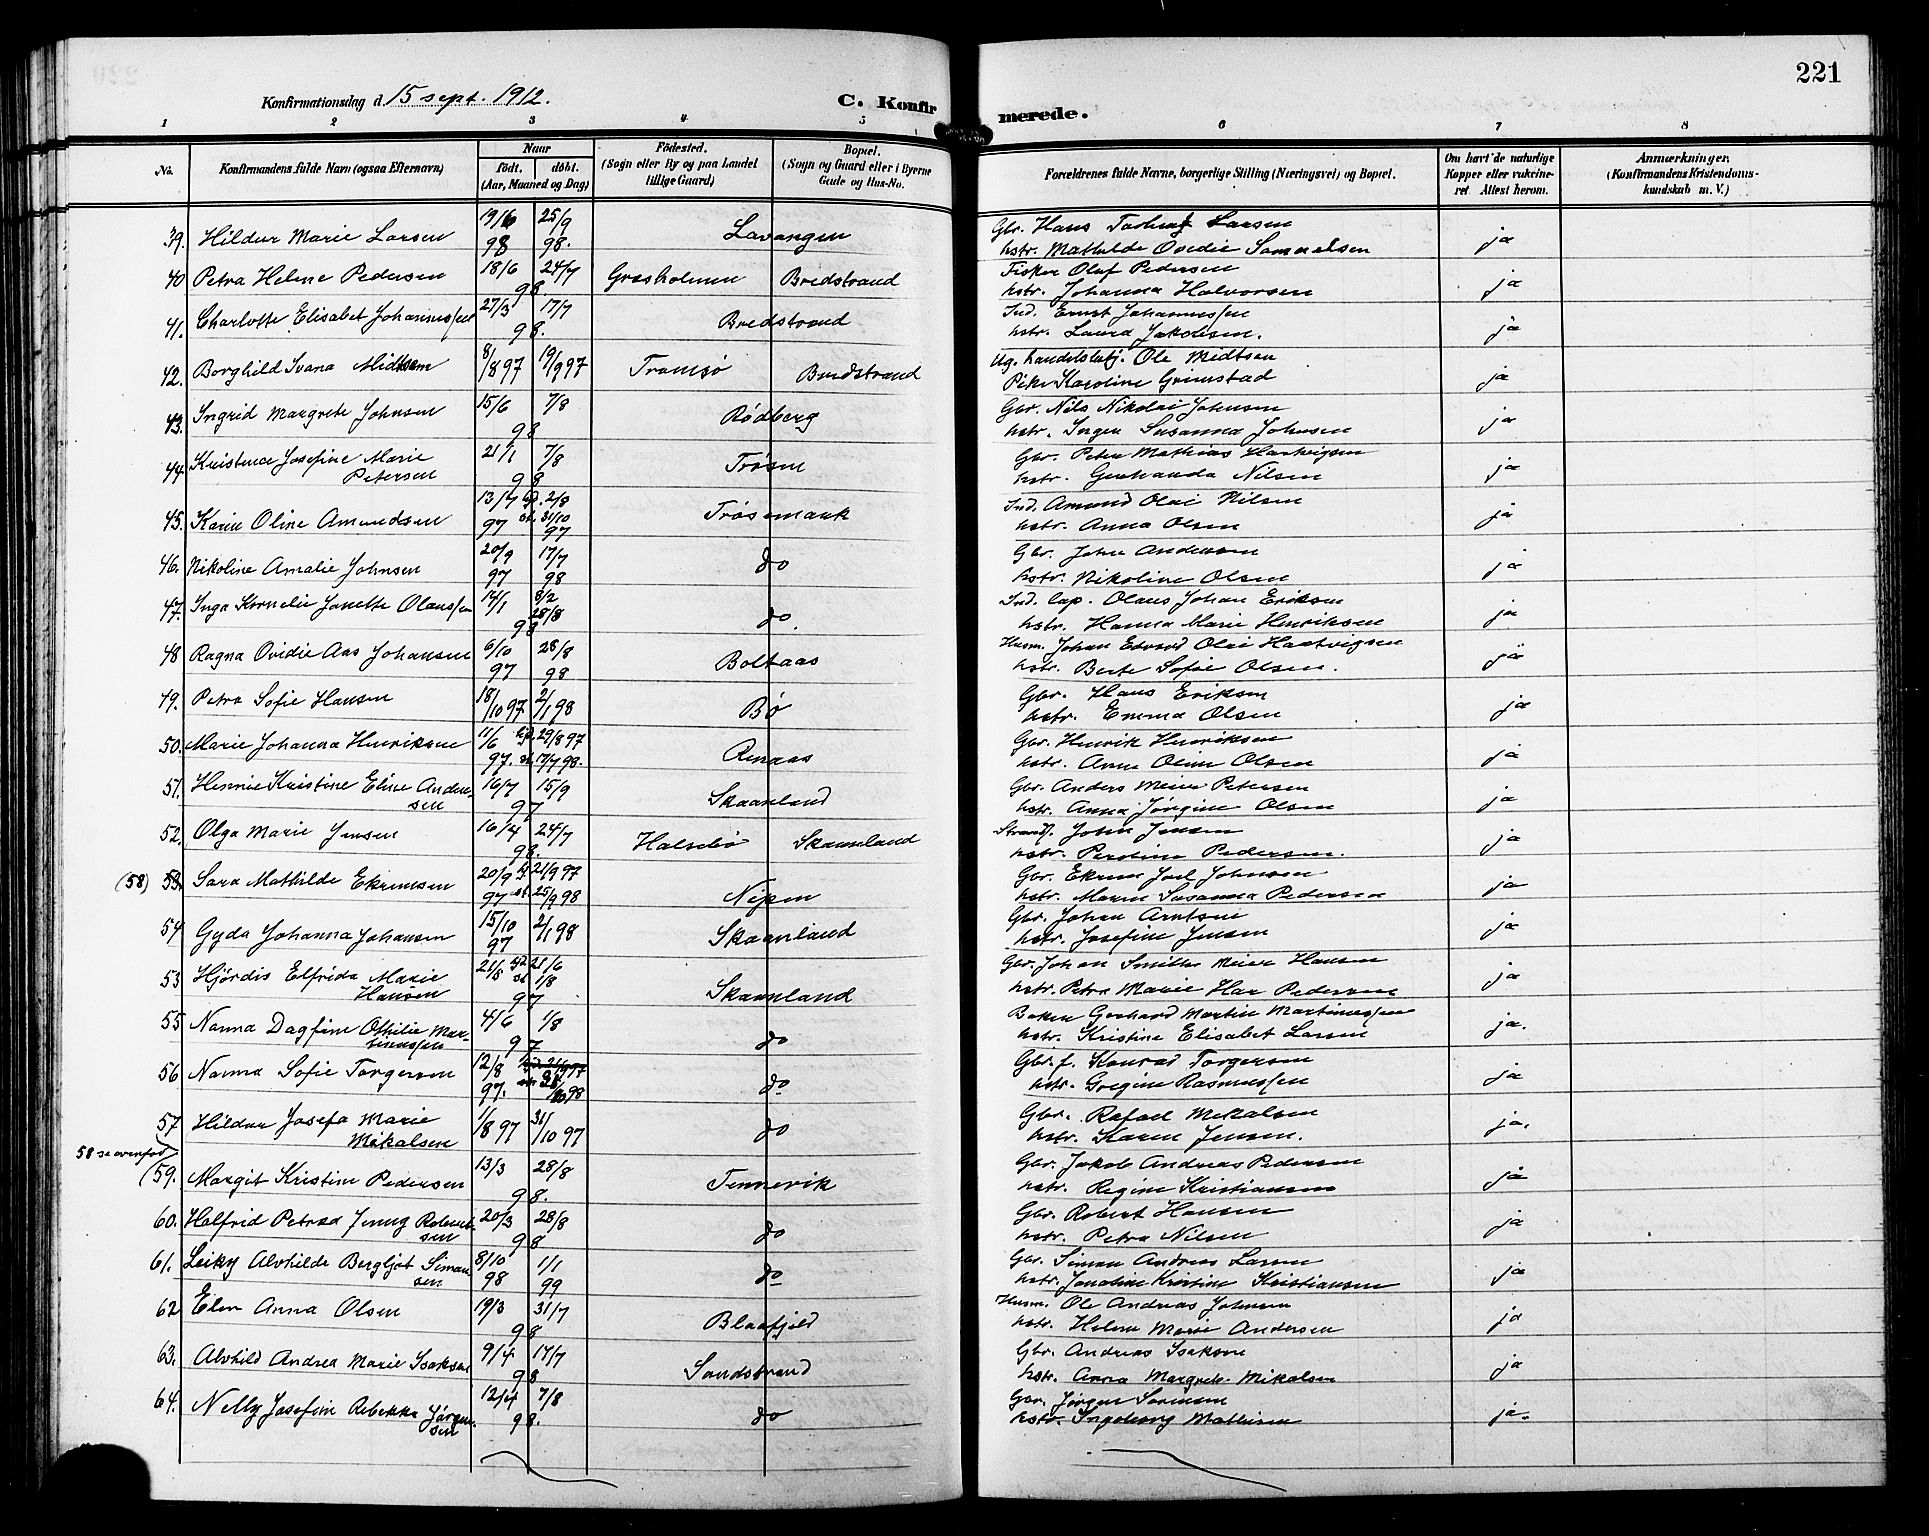 221
Konfirmationsdag d. 15 sept. 1912.
C. Konfirmerede.
1 2 3 4 5 6 7 8
No.
Konfirmandens fulde Navn (ogsaa Efternavn)
Naar
födt. döbt.
(Aar, Maaned og Dag)
Födested.
(Sogn eller By og paa Landet
tillige Gaard)
Bopæl.
(Sogn og Gaard eller i Byerne
Gade og Hus-No.
Forældrenes fulde Navne, borgerlige Stilling (Næringsvei) og Bopæl.
Om havt de naturlige
Kopper eller vakcine-
ret Attest herom.
Anmærkninger.
(Konfirmandens Kristendoms-
kundskab m. V.)
39. Hildur Marie Larsen 19/6 98 25/9 98. Lavangen Gbr. Hans Larsen
hstr. Mathilde Ovedie Samuelsen ja
40 Petra Helene Pedersen 18/6 24/7 98. Grasholmen Bredstrand Fisker Olaf Pedersen
hstr. Johanna Halvorsen ja
41. Charlotte Elisabet Johannessen 27/3 17/7 98. Bredstrand Ind. Ernst Johannessen
hstr. Laura Jakobsen. ja
42. Borghild Ivana Midtsem 8/8 97 19/9 97 Tromsø Bredstrand Ug. handelsbetj. Ole Midtsen
Pike Karoline Grimstad ja
43. Ingrid Margrete Johnsen 15/6 7/8 98 Rødberg Gbr. Nils Nikolai Johnsen
hstr. Inger Susanna Johnsen ja
44. Kristence Josefine Marie
Petersen 21/1 7/8 98 Trøsen Gbr. Peter Mathias Hartvigsen
hstr. Gerharda Nilsen ja
45. Karen Oline Amundsen 13/7 97 hj. 2/8 st. 31/10 97 Trøsemark Ind. Amund Olai Nilsen
hstr. Anna Olsen ja
46. Nikoline Amalie Johnsen 20/9 97 17/7 98 do Gbr. John Andersen
hstr. Nikoline Olsen ja
47. Inga Kornelie Janette Olaussen 14/1 8/2 28/8 98 do. Ind. lap. Olaus Johan Eriksen
hstr. Hanna Marie Henriksen ja
48 Ragna Ovidie Aas Johansen 6/10 97 28/8 98 Boltaas Husm. Johan Edvard Olai Hartvigsen
hstr. Berte Sofie Olsen. ja
49. Petra Sofie Hansen 18/10 97 2/1 98 Bø Gbr. Hans Eriksen
hstr. Emma Olsen ja
50. Marie Johanna Henriksen 11/6 97. hj. 29/8 97 st. 17/7 98. Renaas Gbr. Henrik Henriksen
hstr. Anna Oline Olsen ja
51. Hennie Kristine Eline Ander-
sen 16/7 15/9 97 Skaanland Gbr. Anders Meier Petersen
hstr. Anna Jørgine Olsen ja
52. Olga Marie Jensen 16/4 24/7 98. Halsebø Skaanland Strands. John Jensen
hstr. Peroline Pedersen. ja
(58) 53. Sara Mathilde Ekremsen 20/9 97 hj. 21/9 97 st. 25/9 98 Nipen Gbr. Ekrem Joel Johnsen
hstr. Maren Susanna Pedersen ja
54 Gyda Johanna Johansen 15/10 97 2/1 98 Skaanland Gbr. Johan Arntsen
hstr. Josefine Jensen ja
53 Hjördis Elfrida Marie
Hansen 21/5 hj. 21/6 st. 1/8 97 Skaanland Gbr. Johan Smith Meier Hansen
hstr. Petra Marie Har Pedersen ja
55 Nanna Dagfine Othilie Mar-
tinussen 4/6 1/8 97 do Baker Gerhard Martin Martinussen
hstr. Kristine Elisabet Larsen ja.
56 Nanna Sofie Torgersen 12/8 97. do Gbr. f. Konrad Torgersen
hstr. Gregine Rasmussen ja
57 Hildur Josefa Marie
Mikalsen 1/8 97 31/10 97 do Gbr. Rafael Mikalsen
hstr. Karen Jensen. ja.
58 se ovenfor
(59. Margit Kristine Pedersen 13/3 28/8 98. Tennevik Gbr. Jakob Andreas Pedersen
hstr. Regine Kristiansen ja
60. Halfrid Petrea Jenny Robert-
sen 20/3 28/8 98 do Gbr. Robert Hansen
hstr. Petra Nilsen ja
61. Leiky Alvhilde Bergljot Simon-
sen 8/10 98 1/1 99 do Gbr. Simon Andreas Larsen
hstr. Jonatine Kristine Kristiansen ja
62 Elen Anna Olsen 19/3 31/7 98 Blaafjeld Husm. Ole Andreas Johnsen
hstr. Helene Marie Andersen ja
63. Alvhild Andrea Marie Isaksen 9/4 17/7 98 Sandstrand Gbr. Andreas Isaksen
hstr. Anna Margrete Mikalsen ja
64. Nelly Josefine Rebekka Jörgen-
sen 12/4 7/8 98. do Gbr. Jørgen Sørensen
hstr. Ingeborg Mathisen ja.